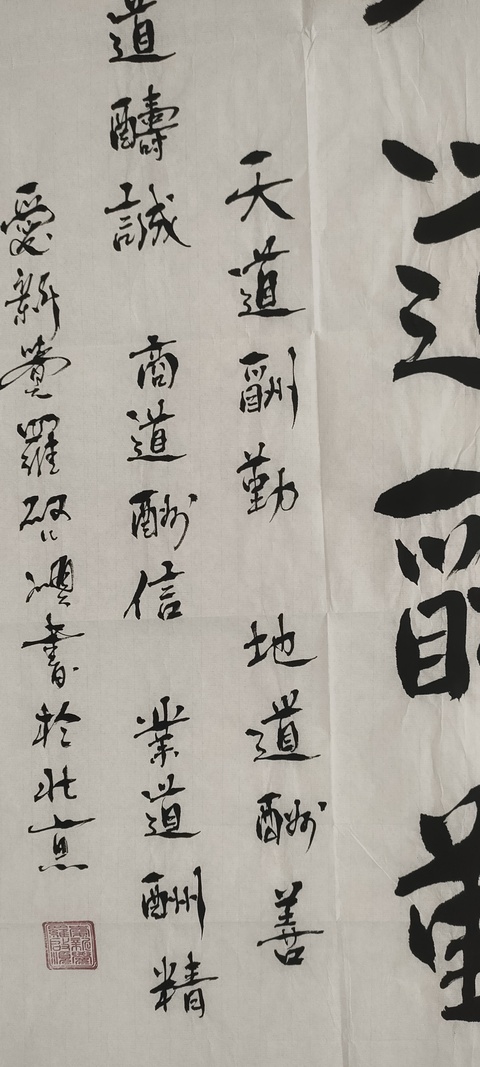 道酬勤
天道酬勤 地道酬善
道醻誠 商道酬信 業道酬精
愛新覺羅啟書於北京